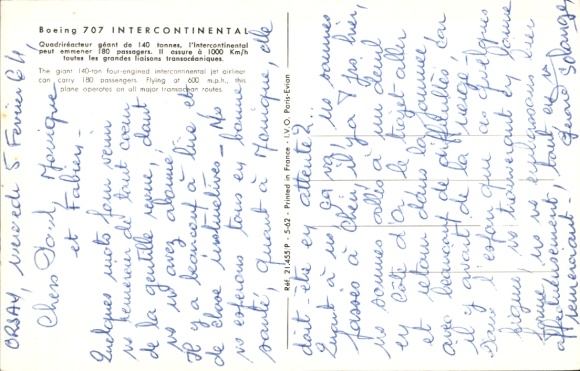 Boeing 707 INTERCONTINENTAL
Quadriréacteur géant de 140 tonnes, l'Intercontinental
peut emmener 180 passagers. Il assure à 1000 Km/h
toutes les grandes liaisons transocéaniques.
The giant 140-ton four-engined intercontinental jet airliner
can carry 180 passengers. Flying at 600 m.p.h., this
plane operates on all major transocean routes.
Réf. 21.455 P - 5-62 - Printed in France - I.V.O. Paris-Evian
ORSAY, mercredi 5 Février 64
Chers Monique
et Fabien
Quelques mots pour vous
remercier de tout cœur
de la gentille revue, dont
ns avez abonné,
Il y a beaucoup à lire et
de chose instructives - Ns
ns espérons tous en bonne
santé, quant à Monique, elle
doit être en attente ?...
Quant à ns ça va, ns sommes
passés à il y a 7 jrs hier,
ns sommes allés à
en côte d'or le trajet aller
et retour dans la journée
avec beaucoup de difficultés, car
il y avait de la neige.
Dans l'espoir que ces quelques
lignes, vs trouveront en bonne
forme, ns vs embrassons bien
affectueusement, tout en vs
remerciant.
Gérard Solange,